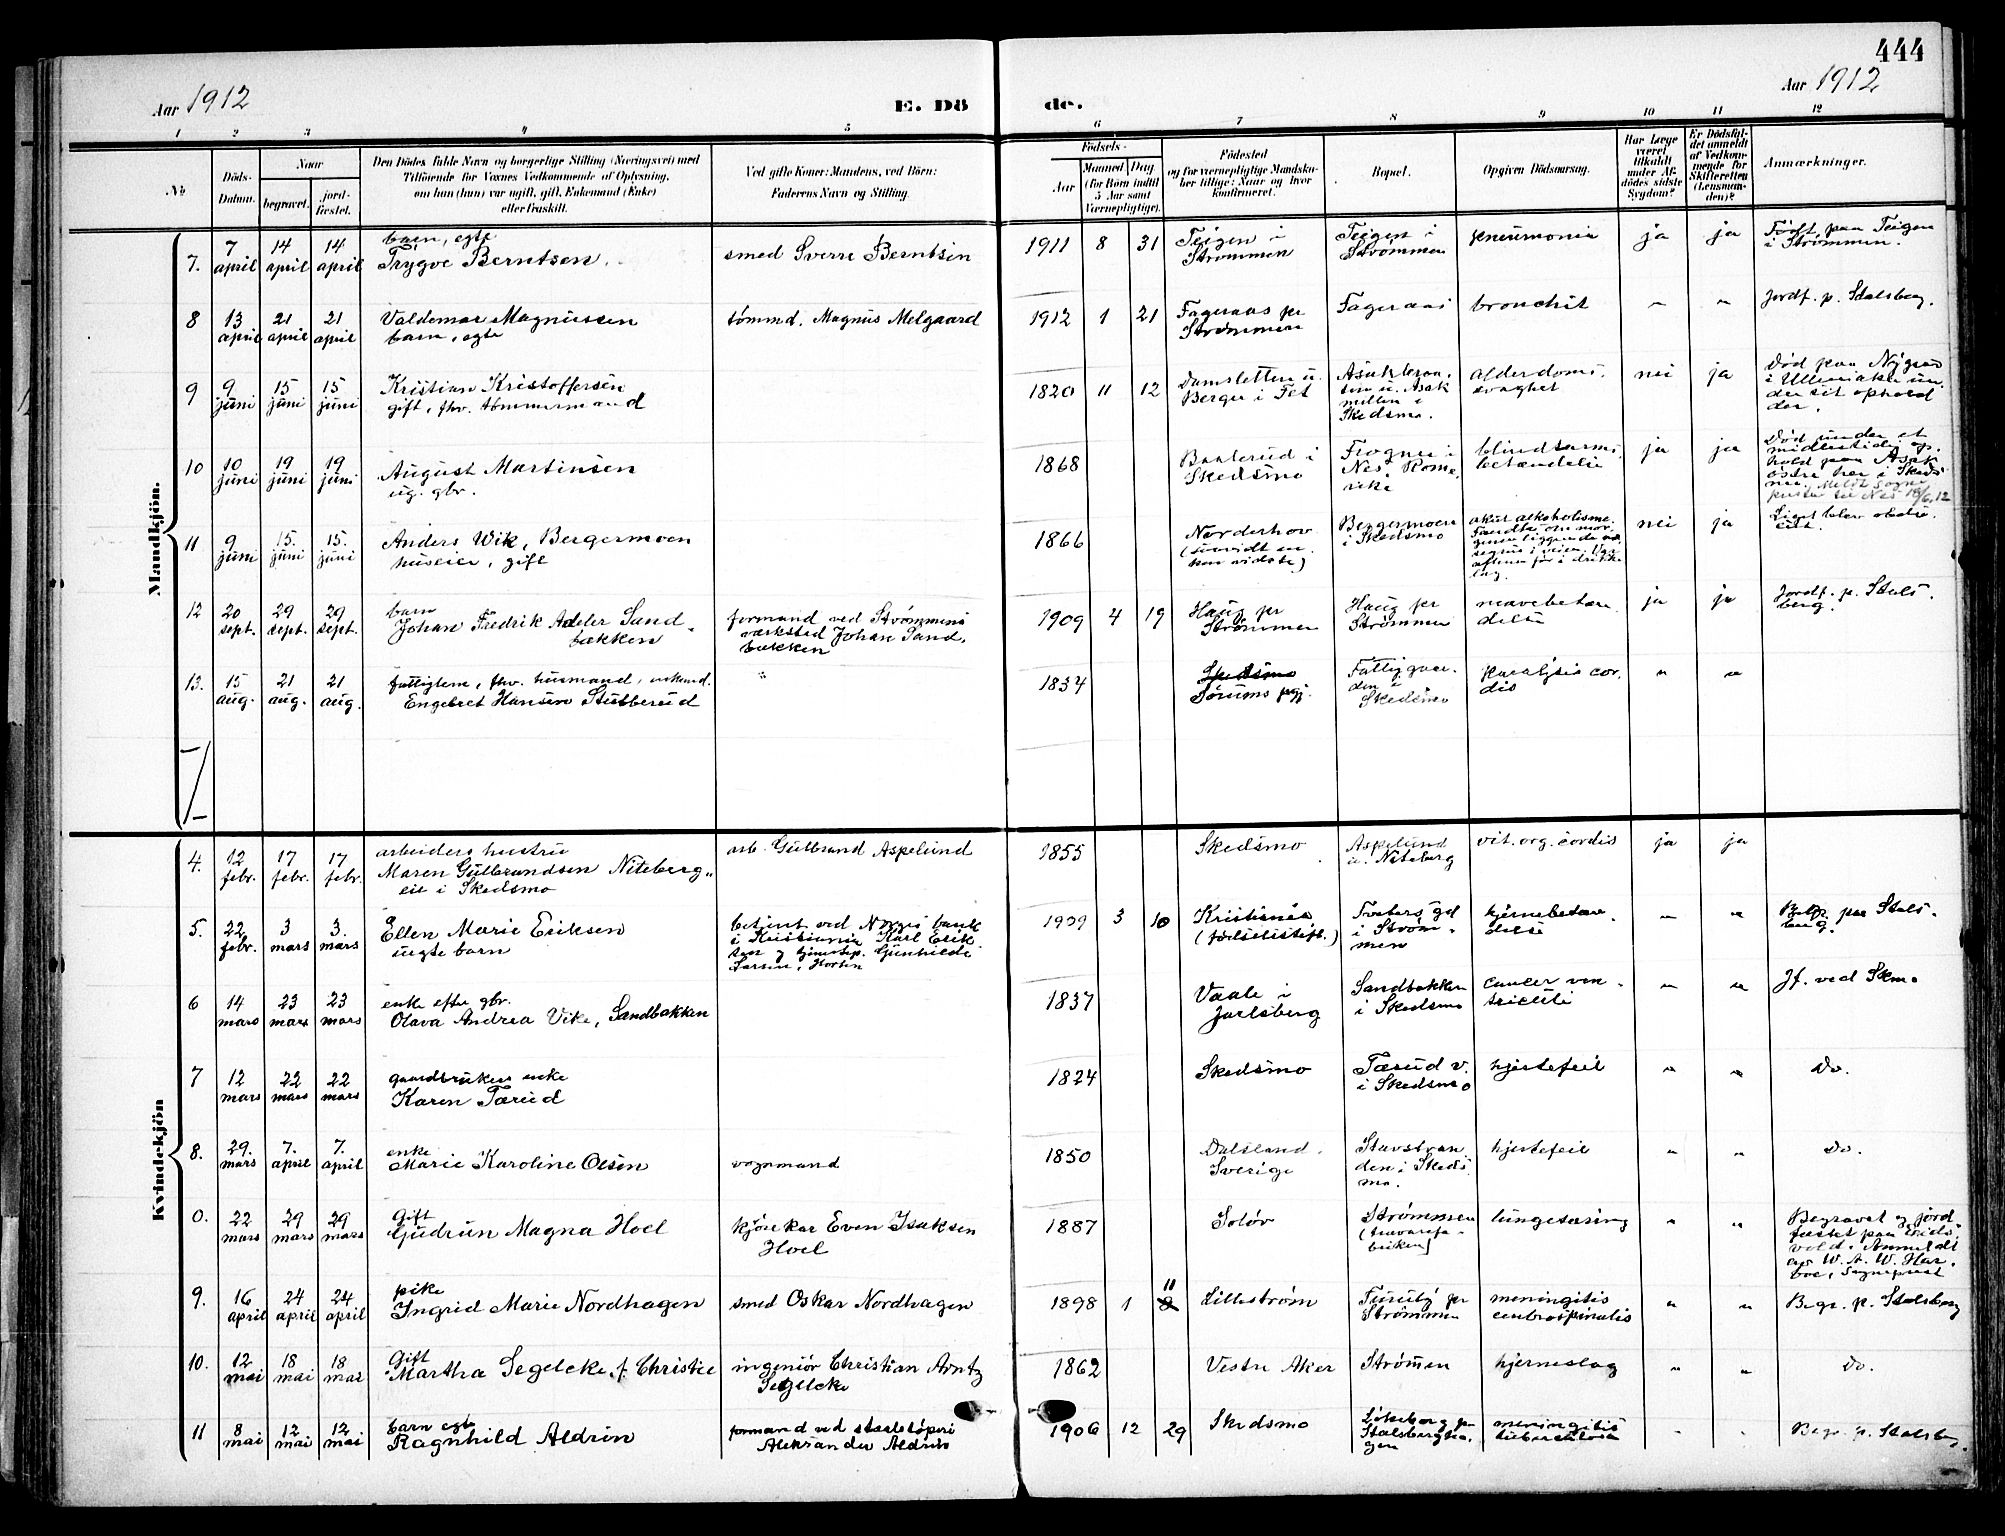 444
Aar 1912
E. Dö
de.
Aar 1912
1 2 3 4 5 6 7 8 9 10 11 12
No
Döds-Datum.
Naar
begravet.
jord-fæstet.
Den Dödes fulde Navn og borgerlige Stilling (Næringsvei) med
Tilföiende for Voxnes Vedkommende af Oplysning,
om han (hun) var ugift, gift, Enkemand (Enke)
eller fraskilt.
Ved gifte Koner: Mandens, ved Börn:
Faderens Navn og Stilling.
Födsels-
Aar
Maaned Dag
(for Börn indtil
5 Aar samt
Værnepligtige).
Födested
og for værnepligtige Mandskaber tillige: Naar og hvor
konfirmeret.
Bopæl.
Opgiven Dödsaarsag.
Har Læge
været
tilkaldt
under Afdödes sidste
Sygdom?
Er Dödsfaldet anmeldt
af Vedkommende for
Skifteretten
(Lensmanden)?
Anmærkninger.
Mandkjön.
7. 7 april 14 april 14 april barn, egte
Trygve Berntsen. smed Sverre Berntsen 1911 8 31 Teigen i Strømmen Teigen i Strømmen pneumonia ja ja Født paa Teigen i Strømmen.
8 13 april 21 april 21 april Valdemar Magnussen
barn, egte tømmd. Magnus Melgaard 1912 1 21 Fageraas pr Strømmen Fageraas bronchit " " Jordf. p. Stalsberg.
9 9 juni 15 juni 15 juni Kristian Kristoffersen
gift, fhv. tømmermand 1820 11 12 Damsletten u. Berger i Fet u. Asak i Skedsmo. alderdoms. svaghet nei ja Død paa i Ullensaker under sit ophold der.
10 10 juni 19 juni 19 juni August Martinsen
ug. gbr. 1868 i Skedsmo Frogner i Nes Romerike blindtarms betændelse ja ja Død under et midlertidig ophold paa Asak østre her i Skedsmo. Meldt sognepresten til Nes 18/6 12
11 9 juni 15. juni 15. juni Anders Wik, Bergermoen
huseier, gift 1866 Norderhov Bergermoen i Skedsmo akut alkoholisme. nei ja Liget blev
12 20 sept. 29 sept. 29 sept. barn
Johan Fredrik Adeler Sandbækken formand ved Strømmens værksted Johan Sandbækken 1909 4 19 Haug pr Strømmen Haug pr Strømmen mavebetændelse ja ja Jordf. p. Stalsberg.
13. 15 aug. 21 aug. 21 aug. fattiglem, fhv. husmand, enkemd.
Engebret Hansen Stubberud " 1834 Skedsmo Sørums pgj. Fattiggaarden i Skedsmo paralysis cordis " "
7
Kvindekjön
4. 12 febr. 17 febr. 17 febr. arbeiders hustru
Maren Gulbrandsen Niteberg-
eie i Skedsmo arb. Gulbrand Aspelund 1855 Skedsmo Aspelund u. Niteberg vit. org. cordis ja ja
5. 22 febr. 3 mars 3. mars Ellen Marie Eriksen
uegte barn betjent ved Norges bank i Kristiania Karl Eriksen og Gunhilde Larsen, Horten 1909 3 10 Kristiania (fødselsstift.) i Strømmen hjernebetændelse " " Begr. paa Stalsberg.
6 14 mars 23 mars 23 mars enke efter gbr.
Olava Andrea Vike, Sandbakken 1837 Vaale i Jarlsberg Sandbakken i Skedsmo cancer ventriculi " " Jf. ved Skmo
7 12 mars 22 mars 22 mars gaardbrukers enke
Karen Tærud 1824 Skedsmo Tærud v. i Skedsmo hjertefeil " " Do.
8. 29. mars 7. april 7. april enke
Marie Karoline Olsen vognmand 1850 Dalsland. Sverige i Skedsmo. hjertefeil " " Do.
0. 22 mars 29 mars 29 mars Gift
Gudrun Magna Hoel kjørekar Even Isaksen Hoel 1887 Solør Strømmen (trævarefabriken) lungetæring " " Begravet og jordfæstet paa Eidsvold. Anmeldt av W. A. W. Harboe, Sogneprest
9. 16 april 24 april 24 april pike
Ingrid Marie Nordhagen smed Oskar Nordhagen 1898 1 11 Lillestrøm Furuly pr Strømmen meningitis cerebrospinalis " " Begr. p. Stalsberg
10. 12 mai 18 mai 18 mai Gift
Martha Segelcke f. Christie ingeniør Christian Arntz Segelcke 1862 Vestre Aker Strømen hjerneslag " " Do.
11 8 mai 12 mai 12 mai barn egte
Ragnhild Aldrin formand ved staalstøperi Aleksander Aldrin 1906 12 29 Skedsmo Løkeberg pr Stalsberghagen meningitis tuberculosa " " Begr. p. Stalsberg.